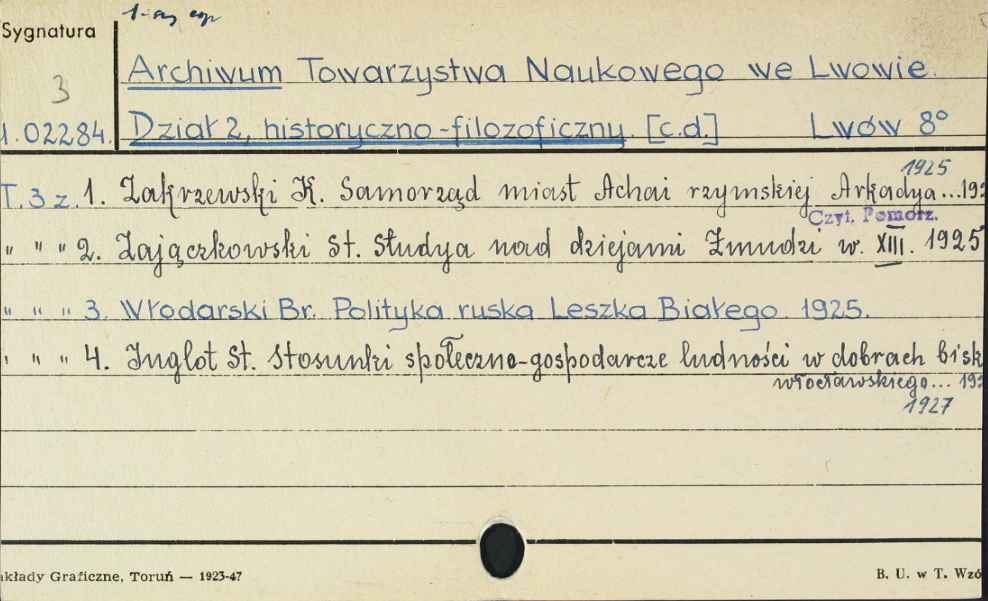 1-szy egz
Sygnatura
Archiwum Towarzystwa Naukowego we Lwowie.
3
1.02284. Dział 2, historyczno-filozoficzny. [c.d.] Lwów 8°
1925
T. 3 z. 1. Zakrzewski K. Samorząd miast Achai rzymskiej Arkadya...192
Czyt. Pomorz.
" " " 2. Zajączkowski St. Studya nad dziejami Żmudzi w. XIII. 1925
" " " 3. Włodarski Br. Polityka ruska Leszka Białego. 1925.
" " " 4. Inglot St. Stosunki społeczno-gospodarcze ludności w dobrach bisk
włocławskiego... 192
1927
akłady Graficzne, Toruń — 1923-47
B. U. w T. Wzó